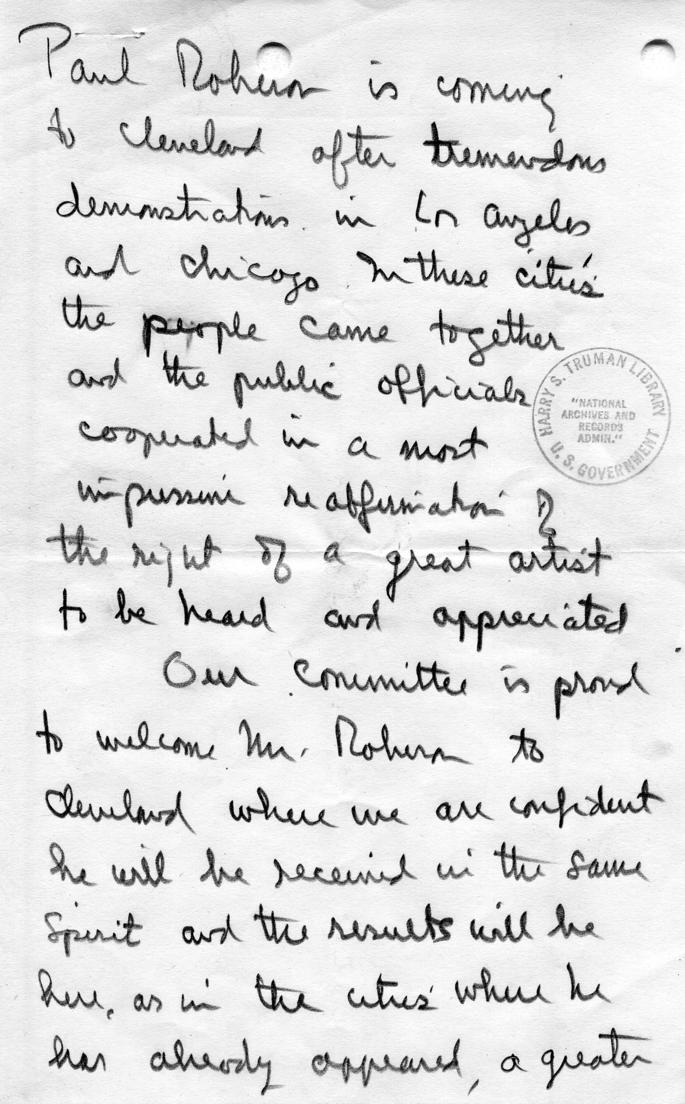 Paul Robeson is coming
to Cleveland after tremendous
demonstrations in Los Angeles
and Chicago. In these cities
the people came together
and the public officials
cooperated in a most
impressive reaffirmation of
the right of a great artist
to be heard and appreciated
Our Committee is proud
to welcome Mr. Robeson to
Cleveland where we are confident
he will be received in the same
Spirit and the results will be
here, as in the cities where he
has already appeared, a greater
HARRY S. TRUMAN LIBRARY
"NATIONAL
ARCHIVES AND
RECORDS
ADMIN."
U. S. GOVERNMENT